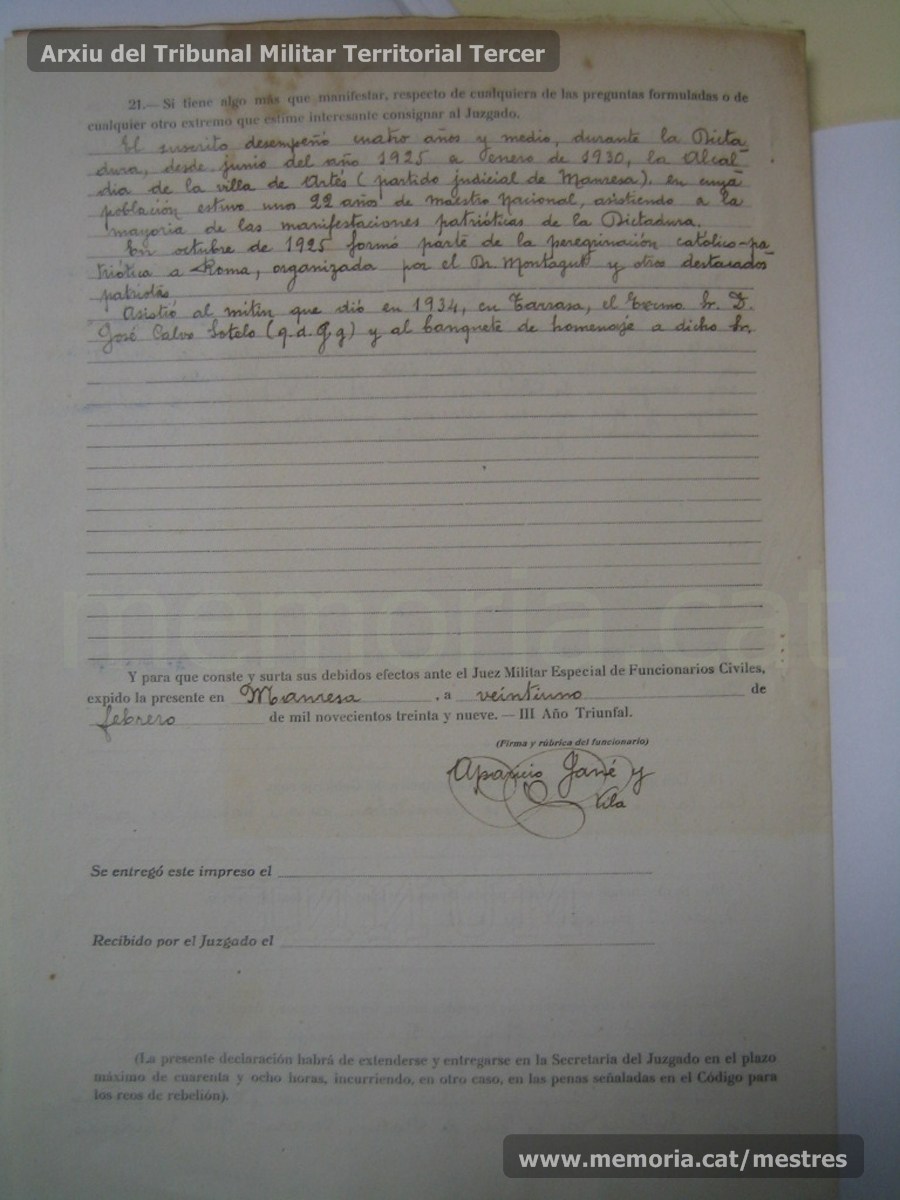 Arxiu del Tribunal Militar Territorial Tercer
21.— Si tiene algo más que manifestar, respecto de cualquiera de las preguntas formuladas o de
cualquier otro extremo que estime interesante consignar al Juzgado.
El suscrito desempeñó cuatro años y medio, durante la Dicta
dura, desde junio del año 1925 a enero de 1930, la Alcal
dia de la villa de Artés (partido judicial de Manresa), en cuya
población estuvo unos 22 años de maestro nacional, asistiendo a la
mayoria de las manifestaciones patrióticas de la Dictadura.
En octubre de 1925 formó parte de la peregrinación católico-pa
triótica a Roma, organizada por el Dr. Montagut y otros destacados
patriotas
Asistió al mitin que dió en 1934, en Tarrasa, el Excmo Sr. D.
José Calvo Sotelo (q.d.G.g) y al banquete de homenaje a dicho Sr.
memoria.cat
Y para que conste y surta sus debidos efectos ante el Juez Militar Especial de Funcionarios Civiles,
expido la presente en Manresa, a veintiuno de
febrero de mil novecientos treinta y nueve. — III Año Triunfal.
(Firma y rúbrica del funcionario)
Aparicio Jané y
Vila
Se entregó este impreso el
Recibido por el Juzgado el
(La presente declaración habrá de extenderse y entregarse en la Secretaría del Juzgado en el plazo
máximo de cuarenta y ocho horas, incurriendo, en otro caso, en las penas señaladas en el Código para
los reos de rebelión).
www.memoria.cat/mestres